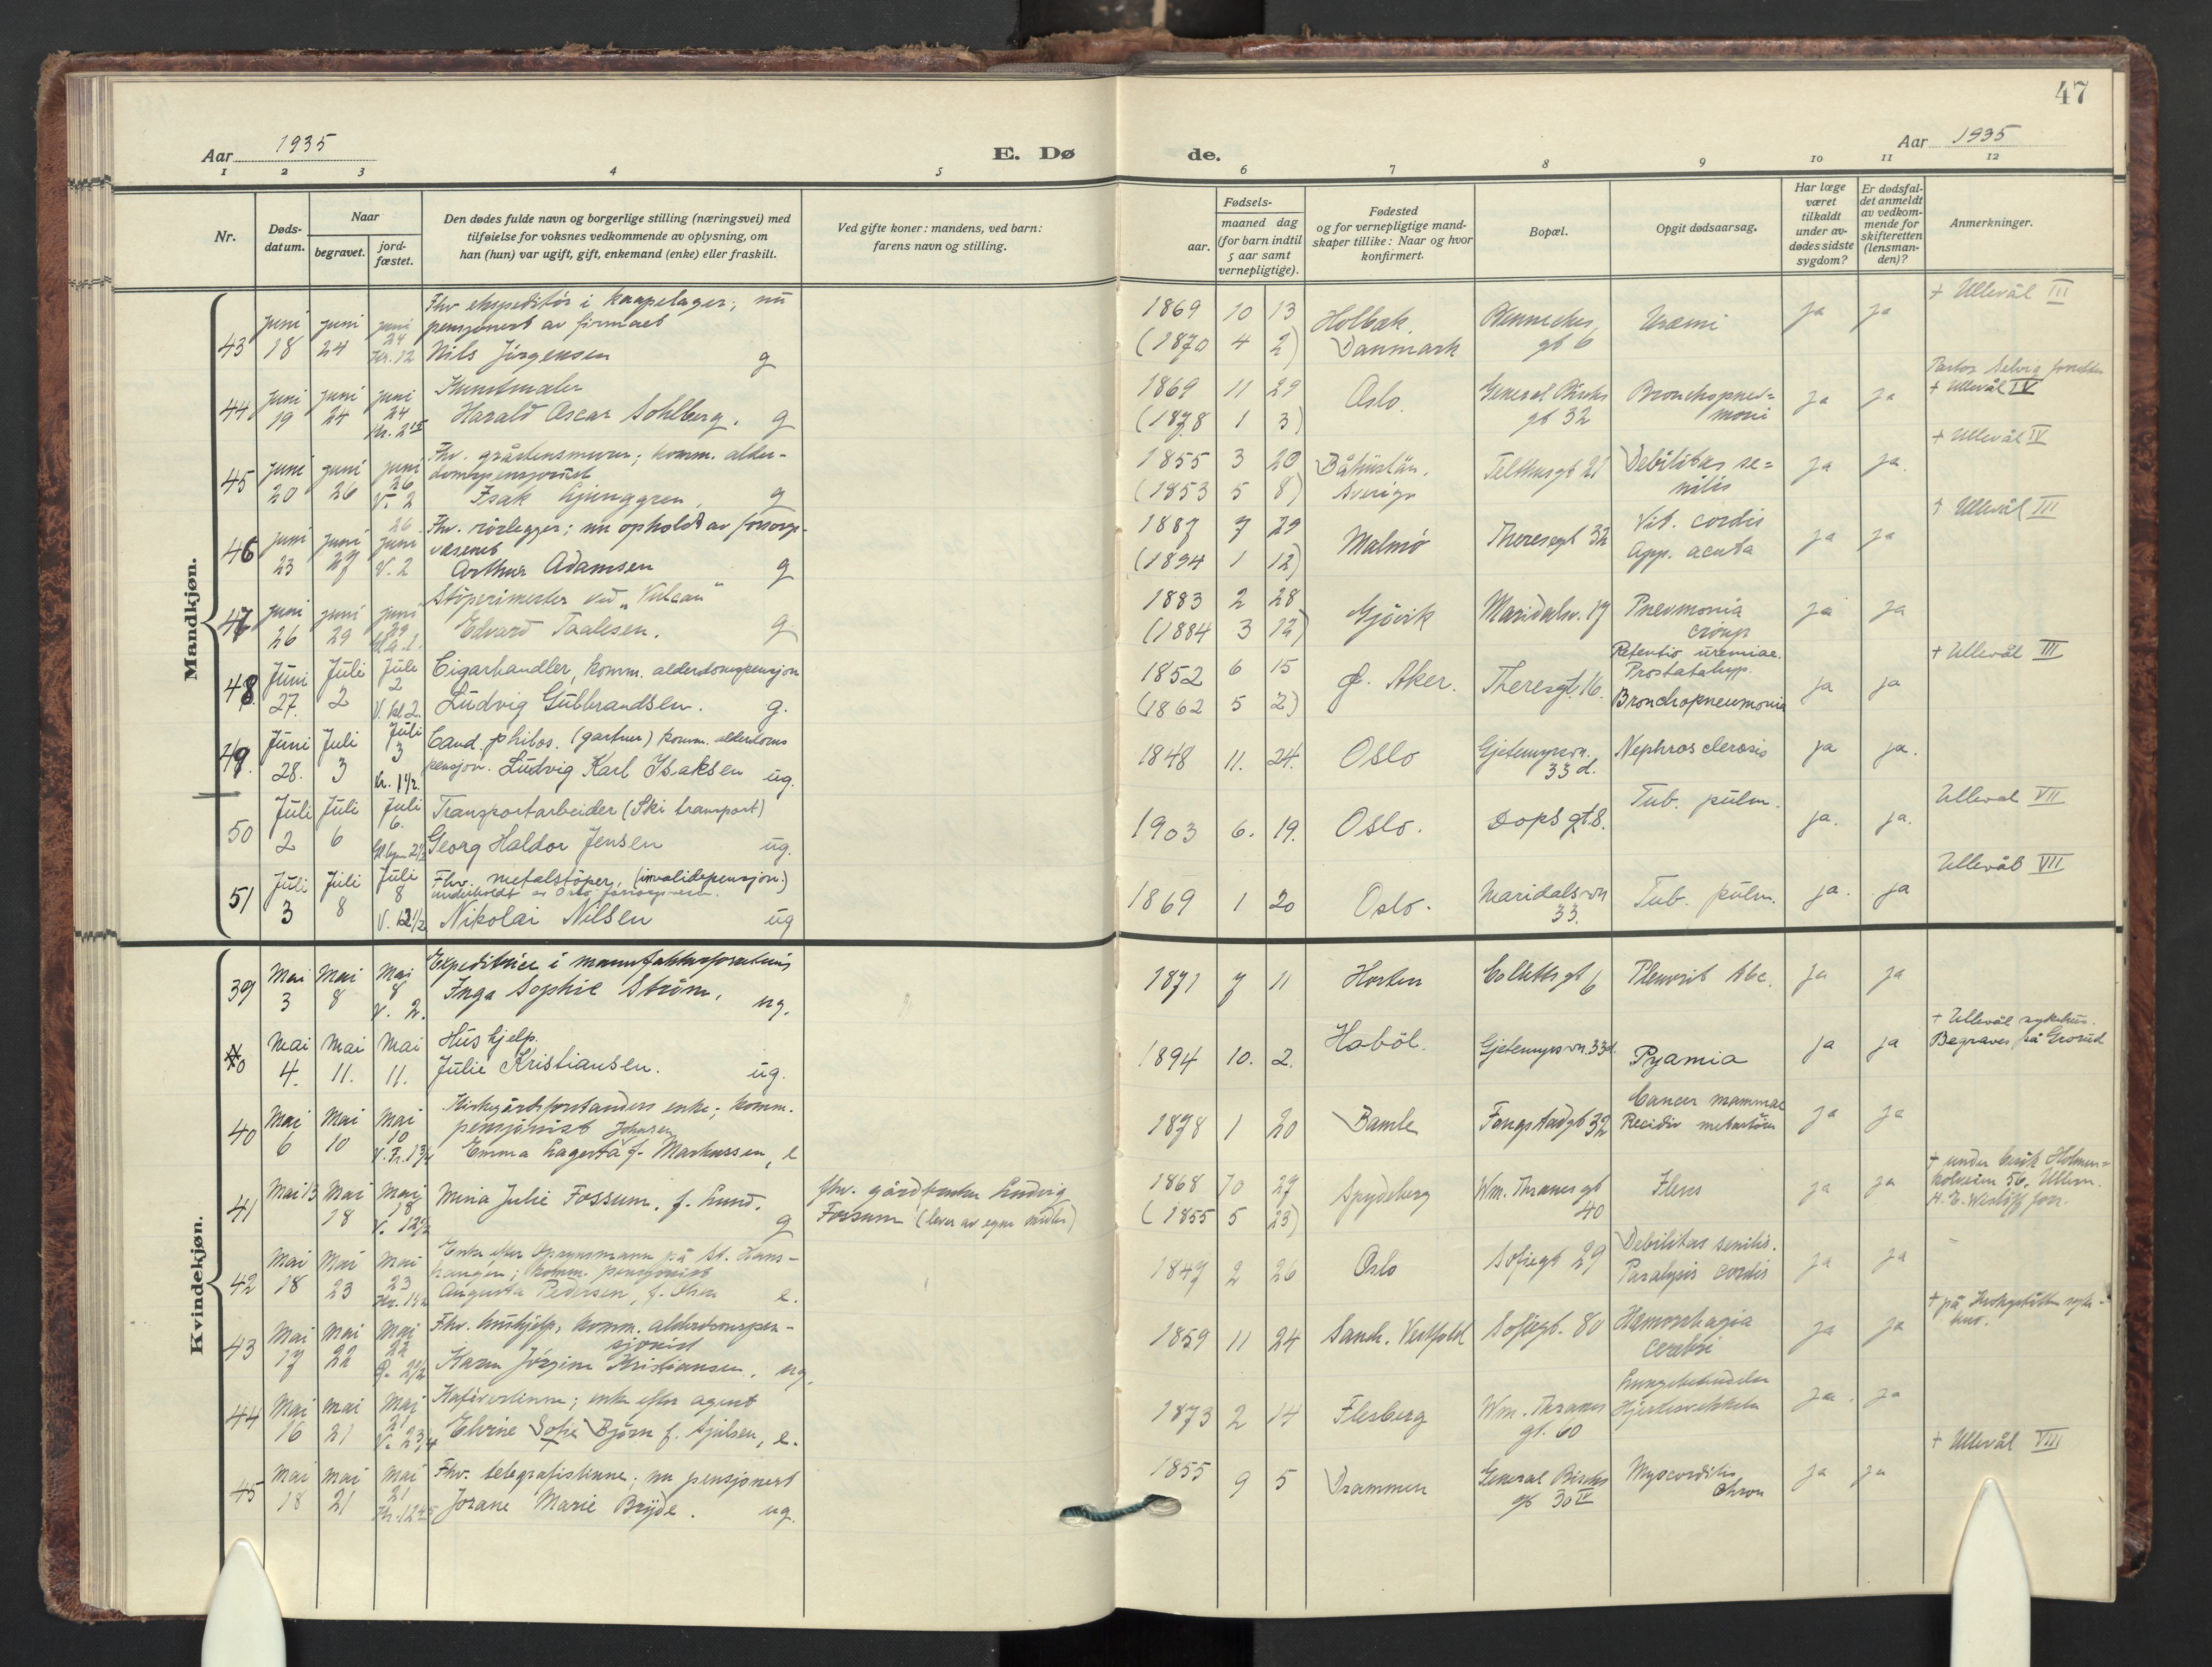 47
Aar 1935
E. Dø
de.
Aar 1935
1 2 3 4 5 6 7 8 9 10 11 12
Nr.
Døds-
datum.
Naar
begravet.
jord-
fæstet.
Den dødes fulde navn og borgerlige stilling (næringsvei) med
tilføielse for voksnes vedkommende av oplysning, om
han (hun) var ugift, gift, enkemand (enke) eller fraskilt.
Ved gifte koner: mandens, ved barn:
farens navn og stilling.
Fødsels-
aar.
maaned dag
(for barn indtil
5 aar samt
vernepligtige).
Fødested
og for vernepligtige mand-
skaper tillike: Naar og hvor
konfirmert.
Bopæl.
Opgit dødsaarsag.
Har læge
været
tilkaldt
under av-
dødes sidste
sygdom?
Er dødsfal-
det anmeldt
av vedkom-
mende for
skifteretten
(lensman-
den)?
Anmerkninger.
Mandkjøn.
43 Juni 18 Juni 24 Juni 24 Kr. 12
Fhv ekspeditör i kaapelager; nu
pensjonert av firmaet
Nils Jörgensen g
1869 10 13
(1870 4 2)
Holbæk.
Danmark
gt 6
Uræmi
ja ja
+ Ullevål III
44 Juni 19 Juni 24 Juni 24 Kr. 2 15
Kunstmaler
Harald Oscar Sohlberg. g
1869 11 29
(1878 1 3)
Oslo.
General Birchs
gt 32
Bronchopneu=
moni
ja ja
Pastor Selvig forrettet
+ Ullevål IV
45 Juni 20 Juni 26 Juni 26 V. 2
Fhv. gråstensmurer; komm. alder-
domspensjonist
Isak Ljunggren, g
1855 3 20
(1853 5 8)
Båhuslän.
Sverige
Telthusgt 21
Debilitas se=
nilis
ja ja.
+ Ullevål IV
46 Juni 23 Juni 27 26 Juni V. 2
Fhv. rörlegger; nu opholdt av forsorgs-
væsenet
Arthur Adamsen g
1887 7 29
(1894 1 12)
Malmö
Theresegt 32
Vit. cordis
App. acuta
ja ja
+ Ullevål III
47 Juni 26 Juni 29 Juni 29
Stöperimester ved „Vulcan"
Edvard Paulsen. g.
1883 2 28
(1884 3 12)
Gjövik
Maridalsv. 17
Pneumonia
croup
ja ja
48 Juni 27. Juli 2 Juli 2 V. kl 2.
Cigarhandler, komm. alderdomspensjon
Ludvig Gulbrandsen. g.
1852 6 15
(1862 5 2)
Ø. Aker.
Theresgt. 16.
Retentio uremiae.
Prostatahyp.
Bronchopneumonia
ja ja
+ Ullevål III
49. Juni 28. Juli 3 Juli 3 Kr. 1 1/2.
Cand. philos. (gartner) komm. alderdoms
pensjon. Ludvig Karl Isaksen ug.
1848 11. 24.
Oslo
Gjetemyrsvn.
33 d.
Nephrosclerosis
ja ja.
50 Juli 2 Juli 6 Juli 6.
Transportarbeider (Ski transport)
Georg Haldor Jensen ug.
1903 6. 19.
Oslo.
Dops gt. 8.
Tub. pulm.
ja. ja.
Ullevål VII
51 Juli 3 Juli 8 Juli 8 V. 12 1/2
Fhv. metalstöper, (invalidepensjon.)
underholdt av Oslo forsorgsvesen.
Nikolai Nilsen ug
1869 1 20
Oslo.
Maridalsvn
33.
Tub. pulm.
ja. ja
Ullevål VII
Kvindekjøn.
39 Mai 3 Mai 8 Mai 8 V. 2.
Expeditrice i manufakturforretning
Inga Sophie Ström, ug.
1871 7 11
Horten
Colletts gt 6
Pleurit
ja ja
40 Mai 4. Mai 11. Mai 11.
Hushjelp.
Julie Kristiansen. ug.
1894 10. 2.
Haböl.
Gjetemyrsvn. 33d.
Pyamia
ja ja
+ Ullevål sykehus.
Begraves på Grorud
40 Mai 6 Mai 10 Mai 10 V. Kr. 1 3/4
Kirkegårdsforstanders enke; komm.
pensjonist Johnsen
Emma Lagerta f. Markussen, e
1878 1 20
Bamle
Fougstadgt 32
Cancer mammae
Recidiv metastaser
ja ja
41 Mai 13 Mai 18 Mai 18 V. 12 1/2
Mina Julie Fossum, f. Lund. g
fhv. gårdbruker Ludvig
Fossum (lever av egne midler)
1868 10 27
(1855 5 23)
Spydeberg
Wm. Thranes gt
40
Ileus
ja ja
+ under besök Holmen=
kolveien 56, Ullern.
42 Mai 18 Mai 23 Mai 23 Kr. 1 1/2
Enke efter Opsynsmann på St. Hans-
haugen; komm. pensjonist
Augusta Pedersen, f. Olsen e.
1847 2 26
Oslo
Sofiegt 29
Debilitas senilis.
Paralysis cordis
ja ja
43 Mai 17 Mai 22 Mai 22 2 1/2
Fhv. hushjelp, komm. alderdomspen-
sjonist
Karen Jörgine Kristiansen, ug.
1859 11 24
Sande. Vestfold
Sofiegt. 80
Hæmorrhagia
cerebri
ja ja
44 Mai 16 Mai 21 Mai 21 V. 2 3/4
Kafévertinne; enke efter agent
Elvine Sofie Björn f. Sjulsen, e.
1873 2 14
Flesberg
Wm. Thranes
gt. 60
Lungebetendelse
Hjertesvekkelse
ja. ja
45 Mai 18 Mai 21 Mai 21 Kr. 12 45
Fhv. telegrafistinne; nu pensjonert
Jozane Marie Bryde. ug.
1855 9 5
Drammen
General Birchs
gt 30 IV
Myocorditis
chron
ja ja
+ Ullevål VIII